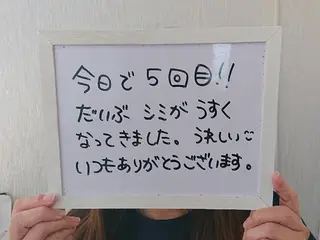 今日で5回目!!
だいぶ シミが うすく
なってきました。うれしい☺
いつもありがとうございます。